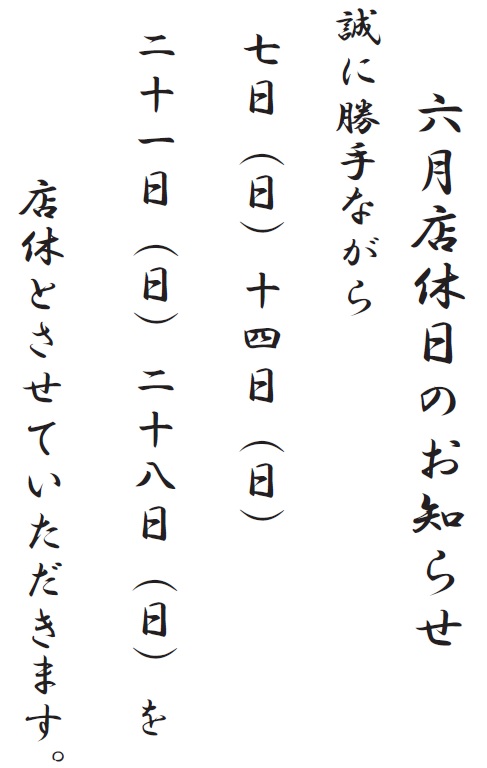 六月店休日のお知らせ
誠に勝手ながら
七日（日）十四日（日）
二十一日（日）二十八日（日）を
店休とさせていただきます。